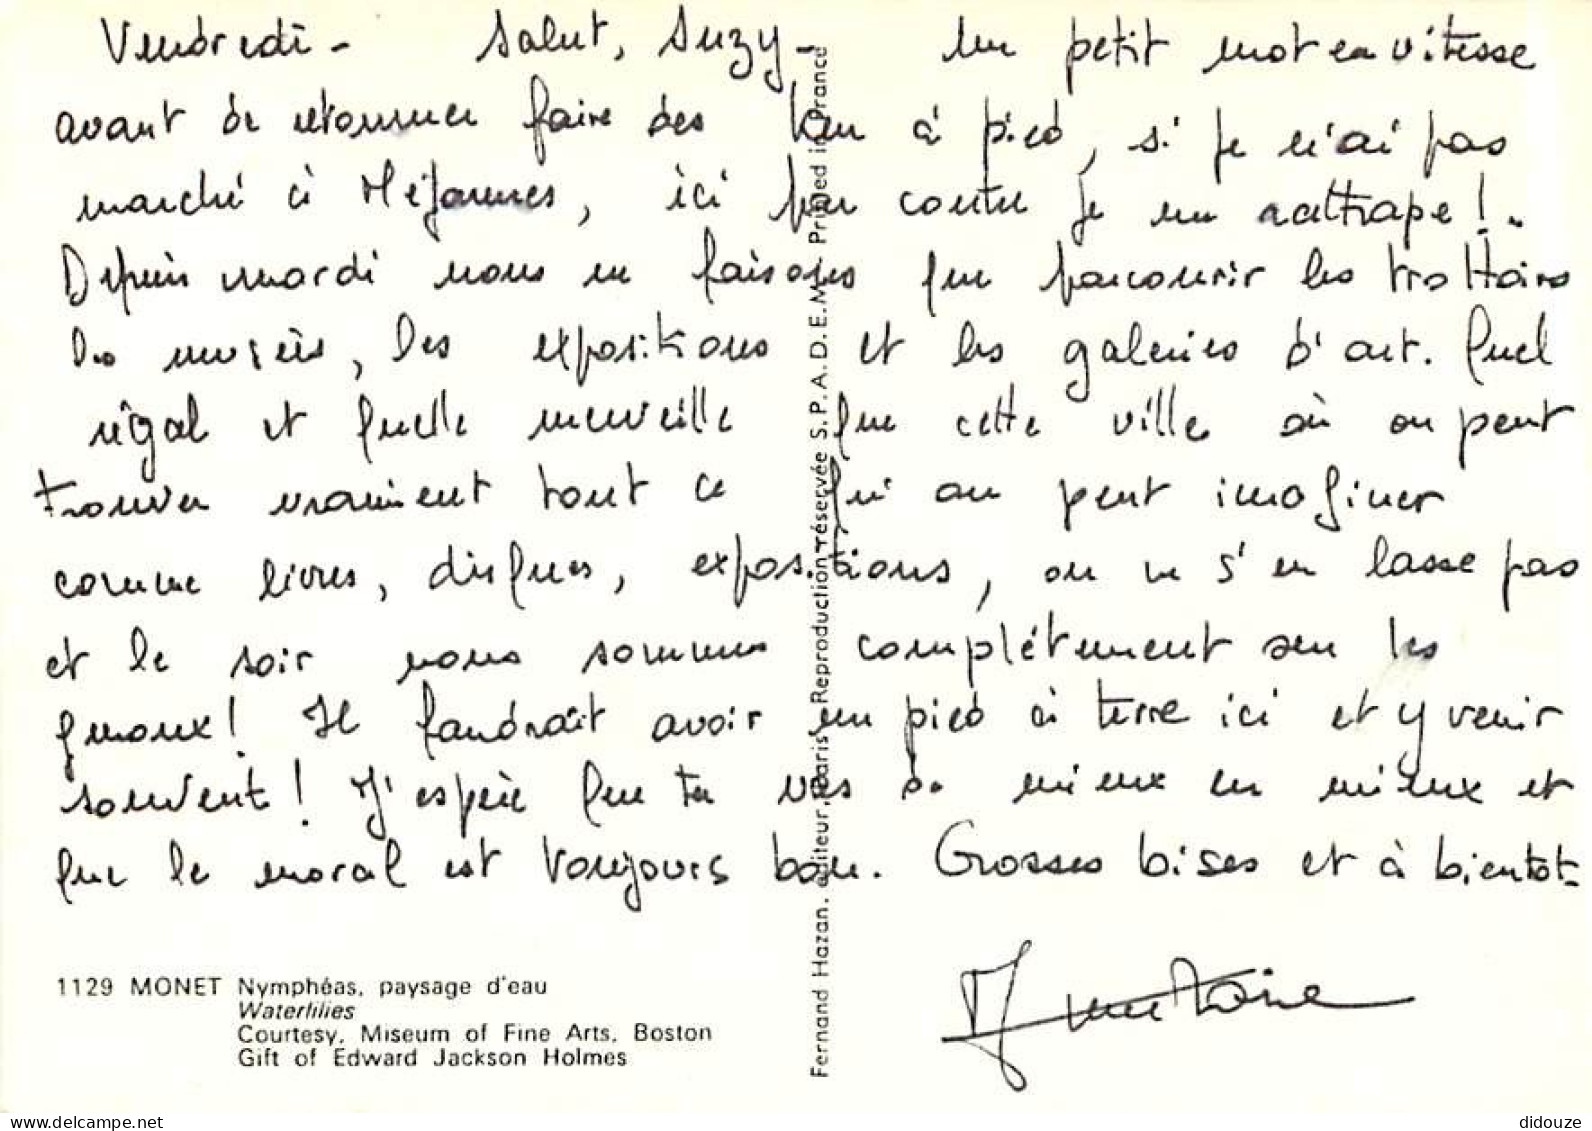 Vendredi - Salut, Suzy - Un petit mot en vitesse
avant de retourner faire des km à pied, si je n'ai pas
marché à Méjannes, ici par contre je me rattrape !..
Depuis mardi nous ne faisons que parcourir les trottoirs
les musées, les expositions et les galeries d'art. Quel
régal et quelle merveille que cette ville où on peut
trouver vraiment tout ce qui on peut imaginer
comme livres, disques, expositions, on ne s'en lasse pas
et le soir nous sommes complétement sur les
genoux ! Il faudrait avoir un pied à terre ici et y venir
souvent ! J'espère que tu vas de mieux en mieux et
que le moral est toujours bon. Grosses bises et à bientot-
1129 MONET Nymphéas, paysage d'eau
Waterlilies
Courtesy, Miseum of Fine Arts, Boston
Gift of Edward Jackson Holmes
Fernand Hazan, éditeur, Paris Reproduction réservée S.P.A.D.E.M. Printed in France
delcampe.net
didouze